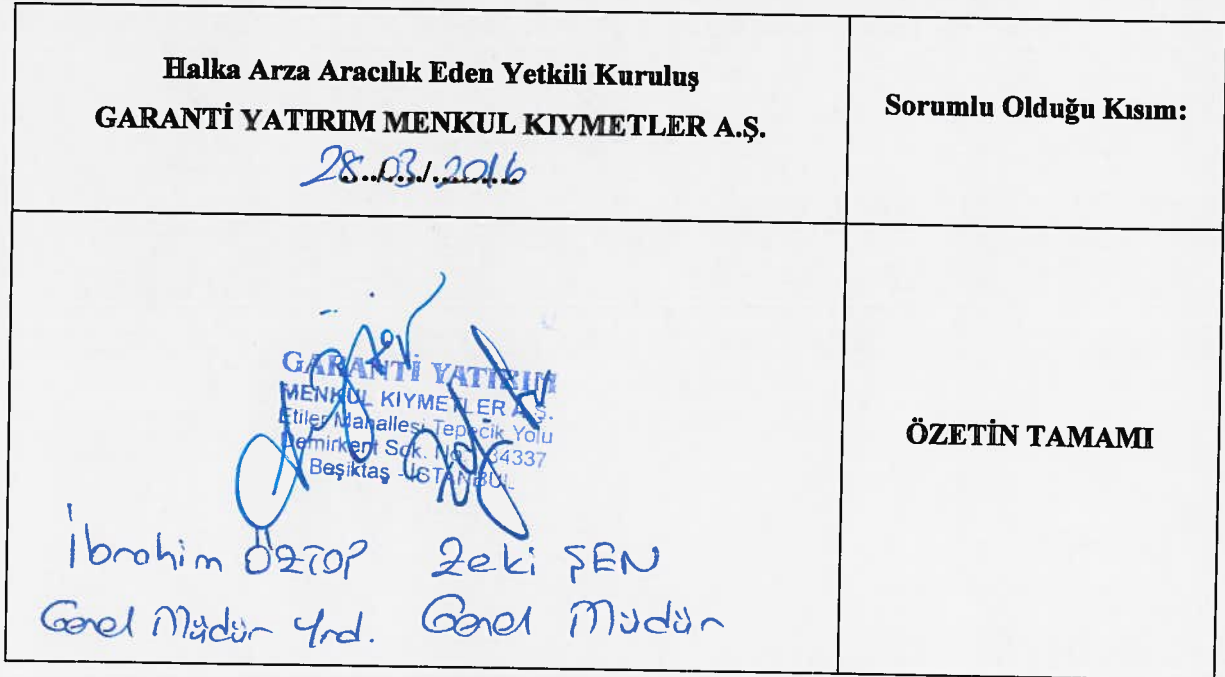 Halka Arza Aracılık Eden Yetkili Kuruluş
GARANTİ YATIRIM MENKUL KIYMETLER A.Ş.
28/03/2016
Sorumlu Olduğu Kısım:
GARANTİ YATIRIM
MENKUL KIYMETLER A.Ş.
Etiler Mahallesi Tepecik Yolu
Demirkent Sok. No. 34337
Beşiktaş - İSTANBUL
İbrahim ÖZTOP Zeki ŞEN
Genel Müdür Yrd. Genel Müdür
ÖZETİN TAMAMI